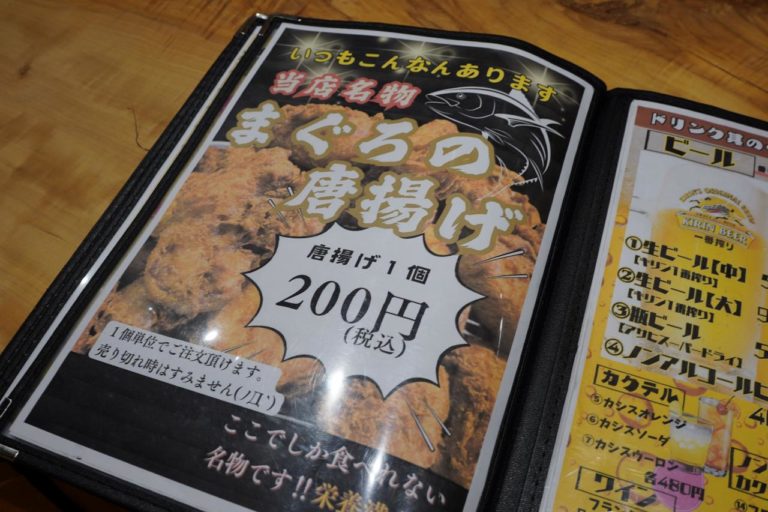 いつもこんなんあります
当店名物
まぐろの
唐揚げ
唐揚げ1個
200円
(税込)
1個単位でご注文頂けます。
売り切れ時はすみません(ノД`)
ここでしか食べれない
名物です!!栄養満
ドリンク其の
ビール
KIRIN BEER
一番搾り
①生ビール【中】
【キリン一番搾り】
②生ビール【大】
【キリン一番搾り】
③瓶ビール
【アサヒスーパードライ】
④ノンアルコールビ
カクテル
⑤カシスオレンジ
⑥カシスソーダ
⑦カシスウーロン
各480円
ワイン